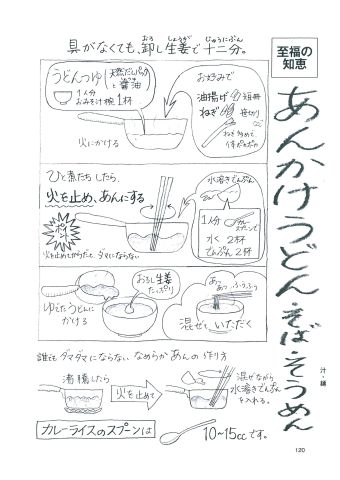 具がなくても、卸し生姜で十二分。
おろ しょうが じゅうにぶん
至福の
知恵
あんかけうどん・そば・そうめん
汁・麺
うどんつゆ
天然だしパック
と醤油
1人分
おみそ汁椀 1杯
火にかける
お好みで
油揚げ 短冊
ねぎ 笹切り
ねぎ多めで、
体ポカポカ
ひと煮たちしたら、
火を止め、あんにする
ポイント
火を止めてからだと、ダマにならない
水溶きでんぷん
1人分
カレースプーンで
水 2杯
でんぷん 2杯
ゆでたうどんに
かける
おろし生姜
たっぷり
あつあつ ふーふーっ
混ぜて、いただく
誰でもダマダマにならない、なめらかあんの作り方
沸騰したら
火を止めて
混ぜながら
水溶きでんぷん
を入れる。
カレーライスのスプーンは
10~15ccです。
120